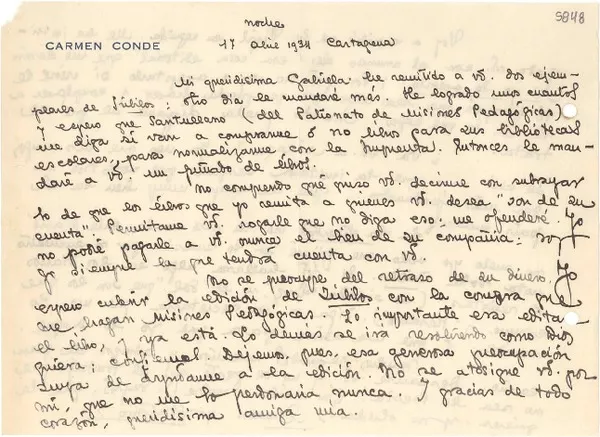 5848
noche
CARMEN CONDE
17 abril 1934 Cartagena
Mi queridísima Gabriela: he remitido a vd. dos ejem-
plares de Júbilos; otro día le mandaré más. He logrado unos cuantos
y espero que Santullano (del Patronato de Misiones Pedagógicas)
me diga si van a comprarme o no libro para sus bibliotecas
escolares, para normalizarme con la imprenta. Entonces le man-
daré a vd. un puñado de libros.
No comprendo qué quiso vd. decirme con subrayar
lo de que los libros que yo remita a quienes vd. desea "son de su
cuenta". Permítame vd. rogarle que no diga eso: me ofenderé. Yo
no podré pagarle a vd. nunca el bien de su compañía: soy
yo siempre la que tendrá cuenta con vd.
No se preocupe del retraso de su dinero. Yo
espero cubrir la edición de Júbilos con la compra que
me hagan Misiones Pedagógicas. Lo importante era editar
el libro, y ya está. Lo demás se irá resolviendo como Dios
quiera; confiemos. Dejemos, pues, esa generosa preocupación
suya de ayudarme a la edición. No se atosigue vd. por
mí, que no me lo perdonaría nunca. Y gracias de todo
corazón, queridísima amiga mía.